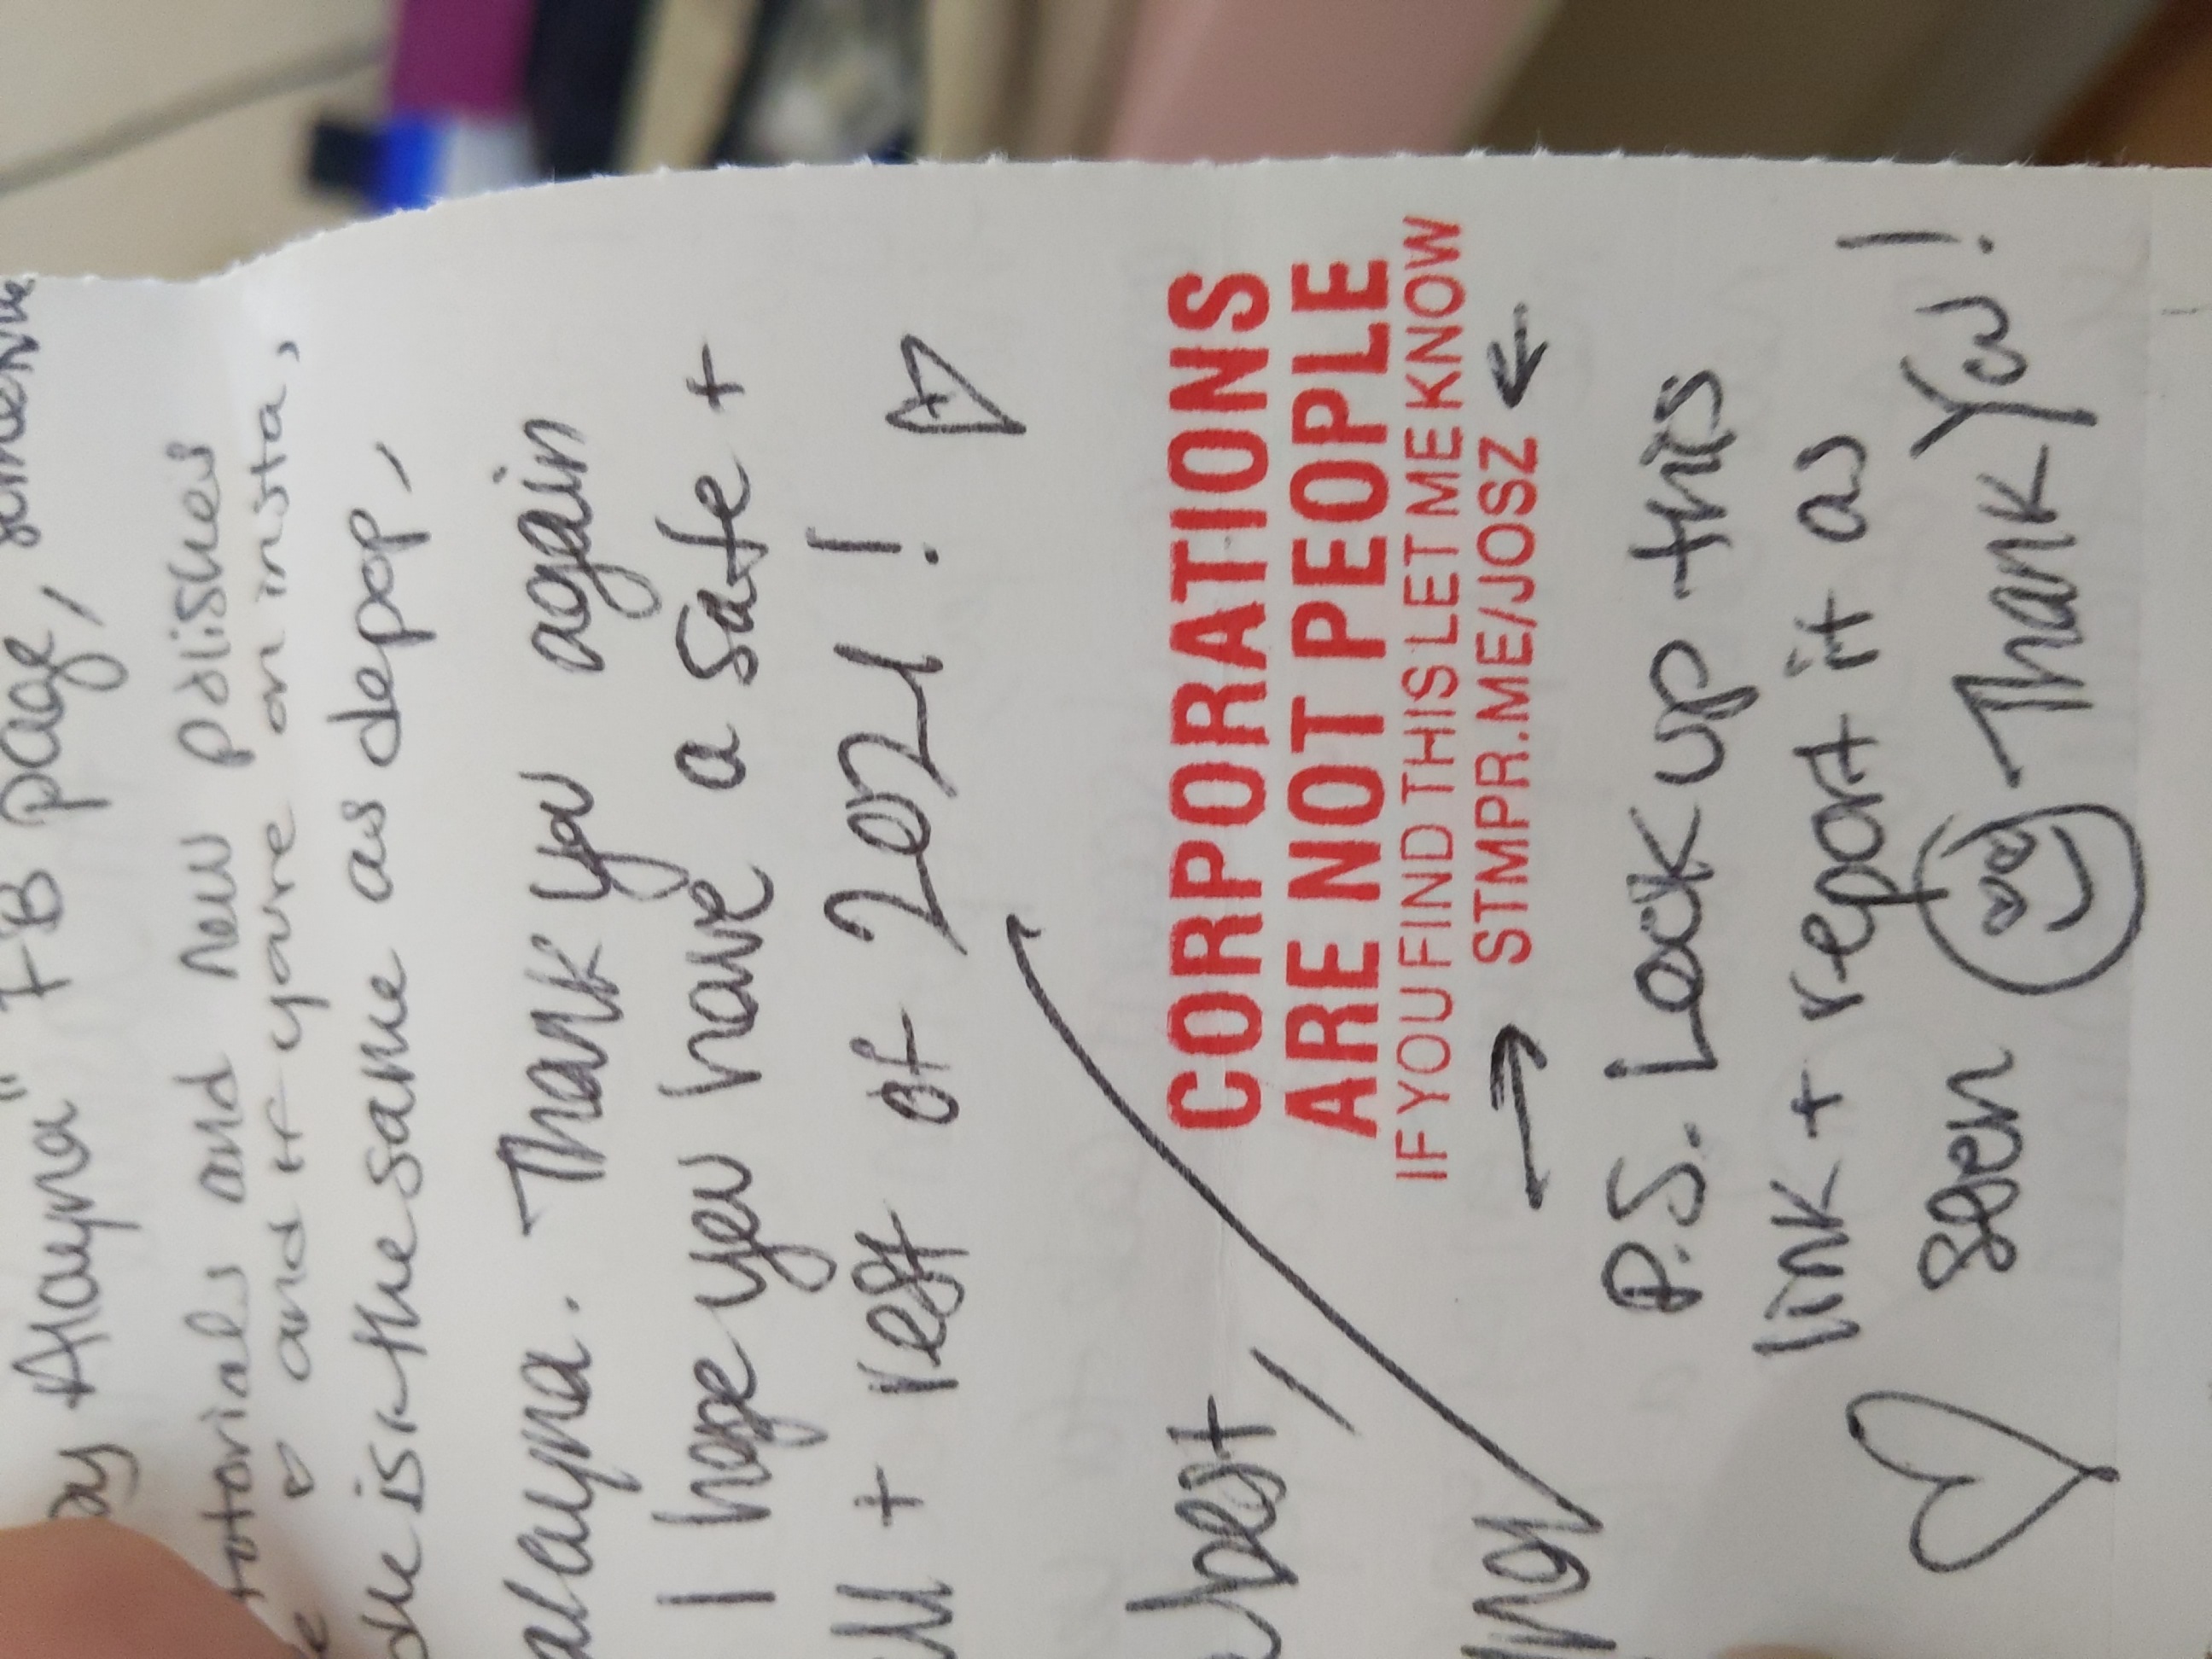 Alayna" FB page,
tutorials and new polishes
and if your on insta,
is the same as depop,
alayna. Thank you again
I hope you have a safe +
+ rest of 2021!
best,
CORPORATIONS
ARE NOT PEOPLE
IF YOU FIND THIS LET ME KNOW
STMPR.ME/JOSZ
P.S. Look up this
link + report it as
seen Thank You!